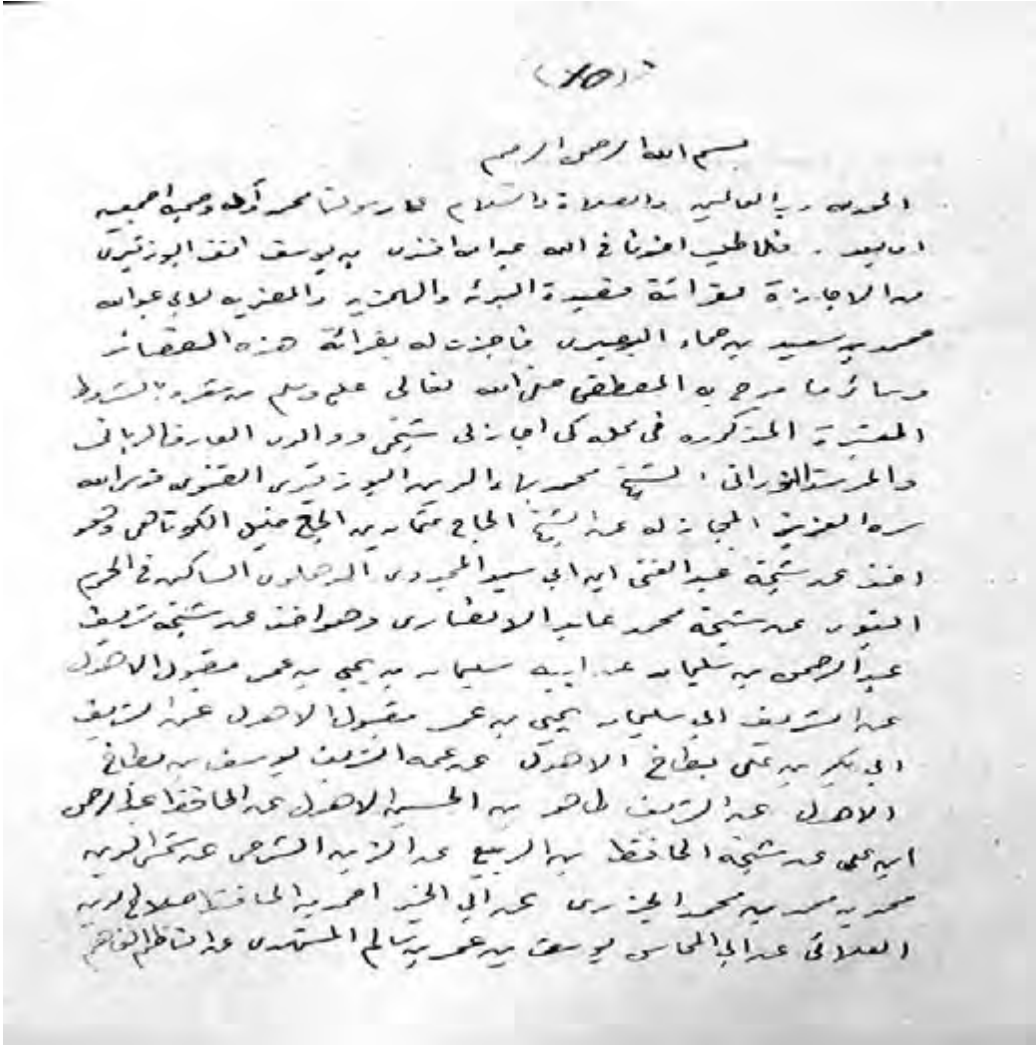 بسم الله الرحمن الرحيم
الحمد لله رب العالمين والصلاة والسلام على رسولنا محمد وآله وصحبه اجمعين
اما بعد . فلما طلب اخونا في الله عبد الله افندى بن يوسف
من الاجازة لقرائة قصيدة البرئه والهمزيه والمضريه لابي عبد الله
محمد بن سعيد بن حماد البوصيرى فاجزت له بقرائة هذه القصائد
وسائر ما مدح به المصطفى صلى الله تعالى عليه وسلم بالشروط
المعتبرة المذكوره في محله كما اجازنى شيخى ووالدى العارف الربانى
والمرشد النورانى الشيخ محمد بهاء الدين قدس الله
سره العزيز المجاز له عن الشيخ الحاج عثمان بن الحاج الكوتاهى وهو
اخذ عن شيخه عبد الغنى ابن ابي سعيد المجددى الدهلوى الساكن في الحرم
النبوى عن شيخه محمد عابد الانصارى وهو اخذ عن شيخه شريف
عبد الرحمن بن سليمان عن ابيه سليمان بن يحيى بن عمر مقبول الاهدل
عن الشريف ابي سليمان يحيى بن عمر مقبول الاهدل عن الشريف
ابي بكر بن على بطاح الاهدل عن عمه الشريف يوسف بن بطاح
الاهدل عن الشريف طاهر بن الحسين الاهدل عن الحافظ عبد الرحمن
ابن على عن شيخه الحافظ بن الربيع عن الزين الشرجى عن شمس الدين
محمد بن محمد بن محمد الجزرى عن ابي الخير احمد بن الحافظ صلاح الدين
العلائى عن ابي المحاسن يوسف بن عمر بن سالم المشهدى عن الناظم